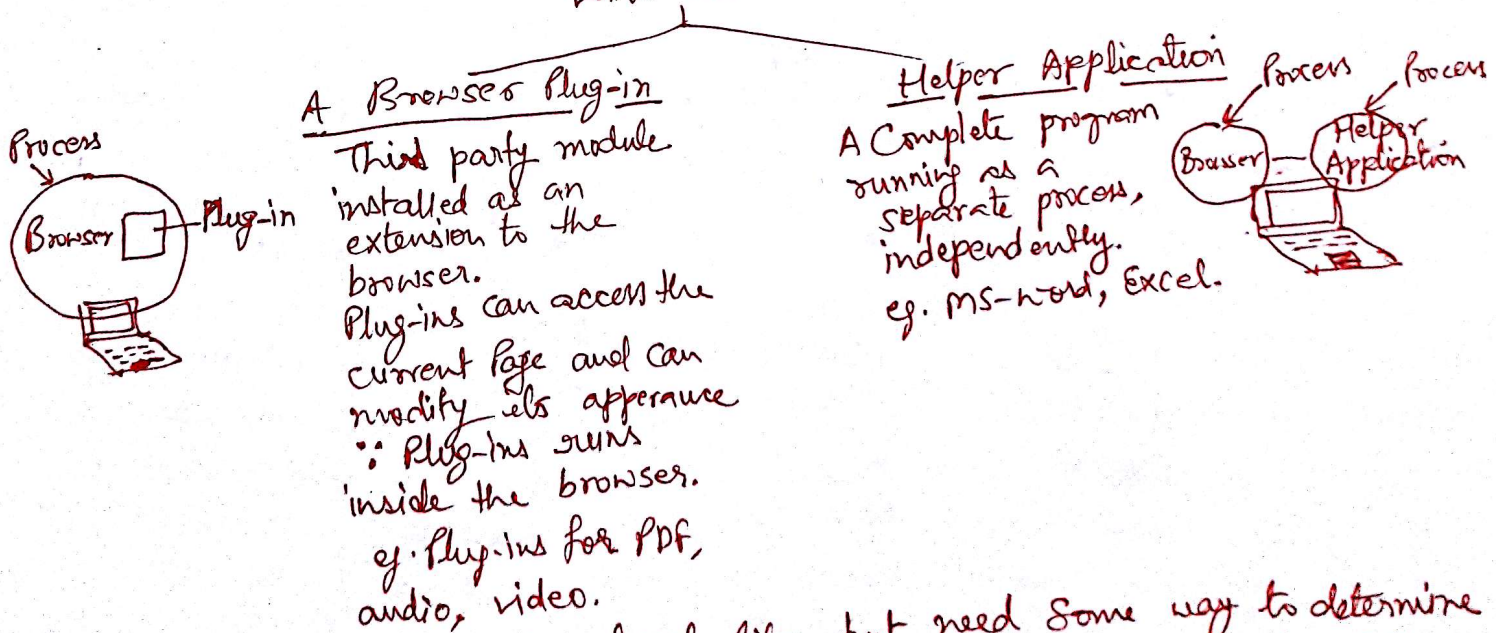 A Browser Plug-in
Process
Browser
Plug-in
Third party module
installed as an
extension to the
browser.
Plug-ins can access the
current Page and can
modify its apperance
∵ Plug-ins runs
inside the browser.
eg. Plug-ins for PDF,
audio, video.
Helper Application
A Complete program
running as a
separate process,
independently.
eg. MS-word, Excel.
Process
Process
Browser
Helper
Application
but need some way to determine